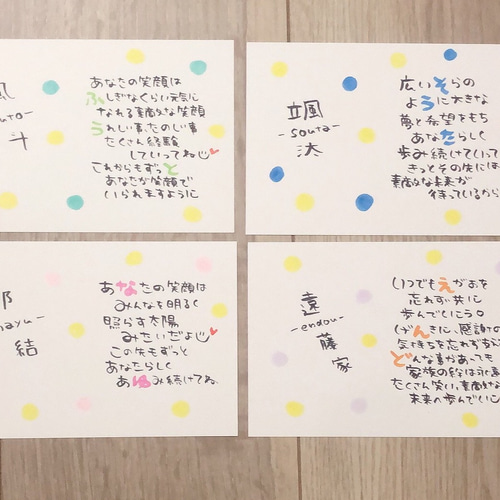 風
斗
あなたの笑顔は
ふしぎなくらい元気に
なれる素敵な笑顔
うれしい事たのしい事
たくさん経験
していってね
これからもずっと
あなたが笑顔で
いられますように
颯
-souta-
汰
広いそらの
ように大きな
夢と希望をもち
あなたらしく
歩み続けていって
きっとその先には
素敵な未来が
待っているから
那
結
あなたの笑顔は
みんなを明るく
照らす太陽
みたいだよ
この先もずっと
あなたらしく
あゆみ続けてね。
遠
-endou-
藤
家
いつでもえがおを
忘れず共に
歩んでいこう。
げんきに、感謝の
気持ちを忘れず
どんな事があっても
家族の絆は永
たくさん笑い、素敵な
未来へ歩んでいこ